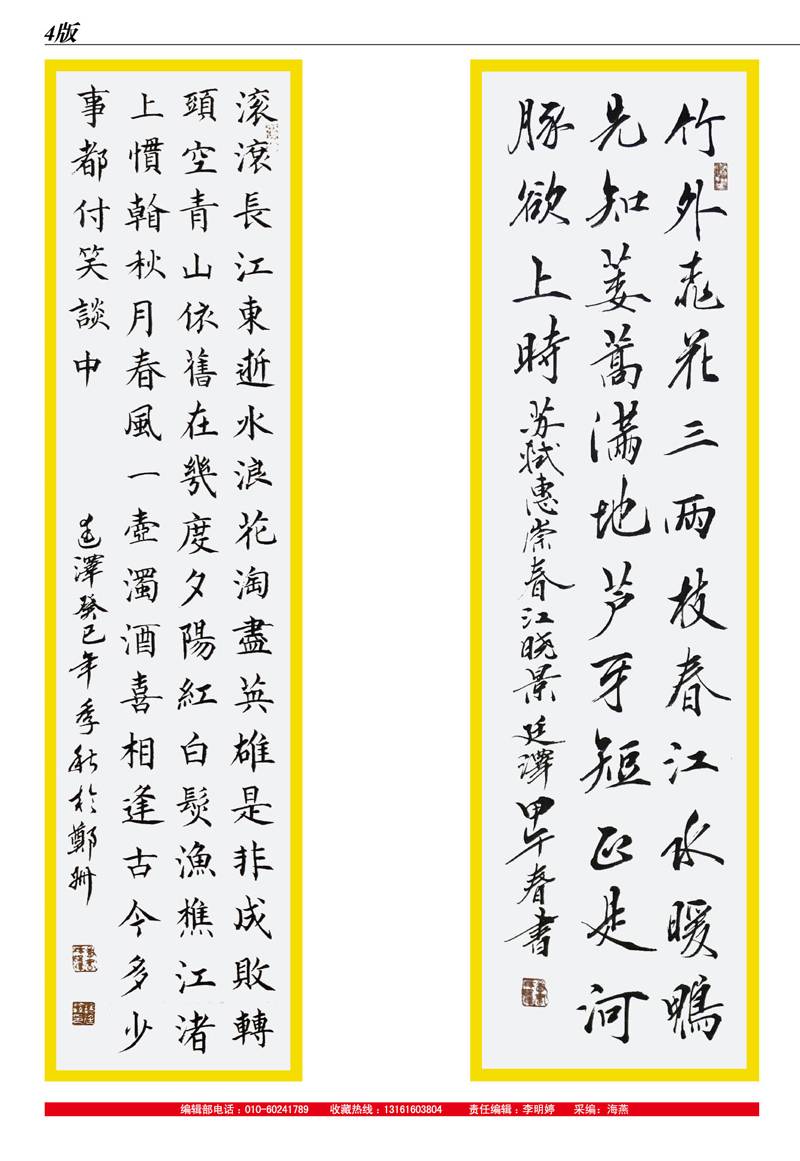 4版
竹外桃花三两枝春江水暖鴨
先知蒌蒿满地芦牙短正是河
豚欲上時 苏轼惠崇春江晓景 廷澤甲午春書
滚滚長江東逝水浪花淘盡英雄是非成敗轉
頭空青山依舊在幾度夕陽紅白髮漁樵江渚
上慣看秋月春風一壺濁酒喜相逢古今多少
事都付笑談中 廷澤癸巳年季秋於鄭州
编辑部电话：010-60241789 收藏热线：13161603804 责任编辑：李明婷 采编：海燕